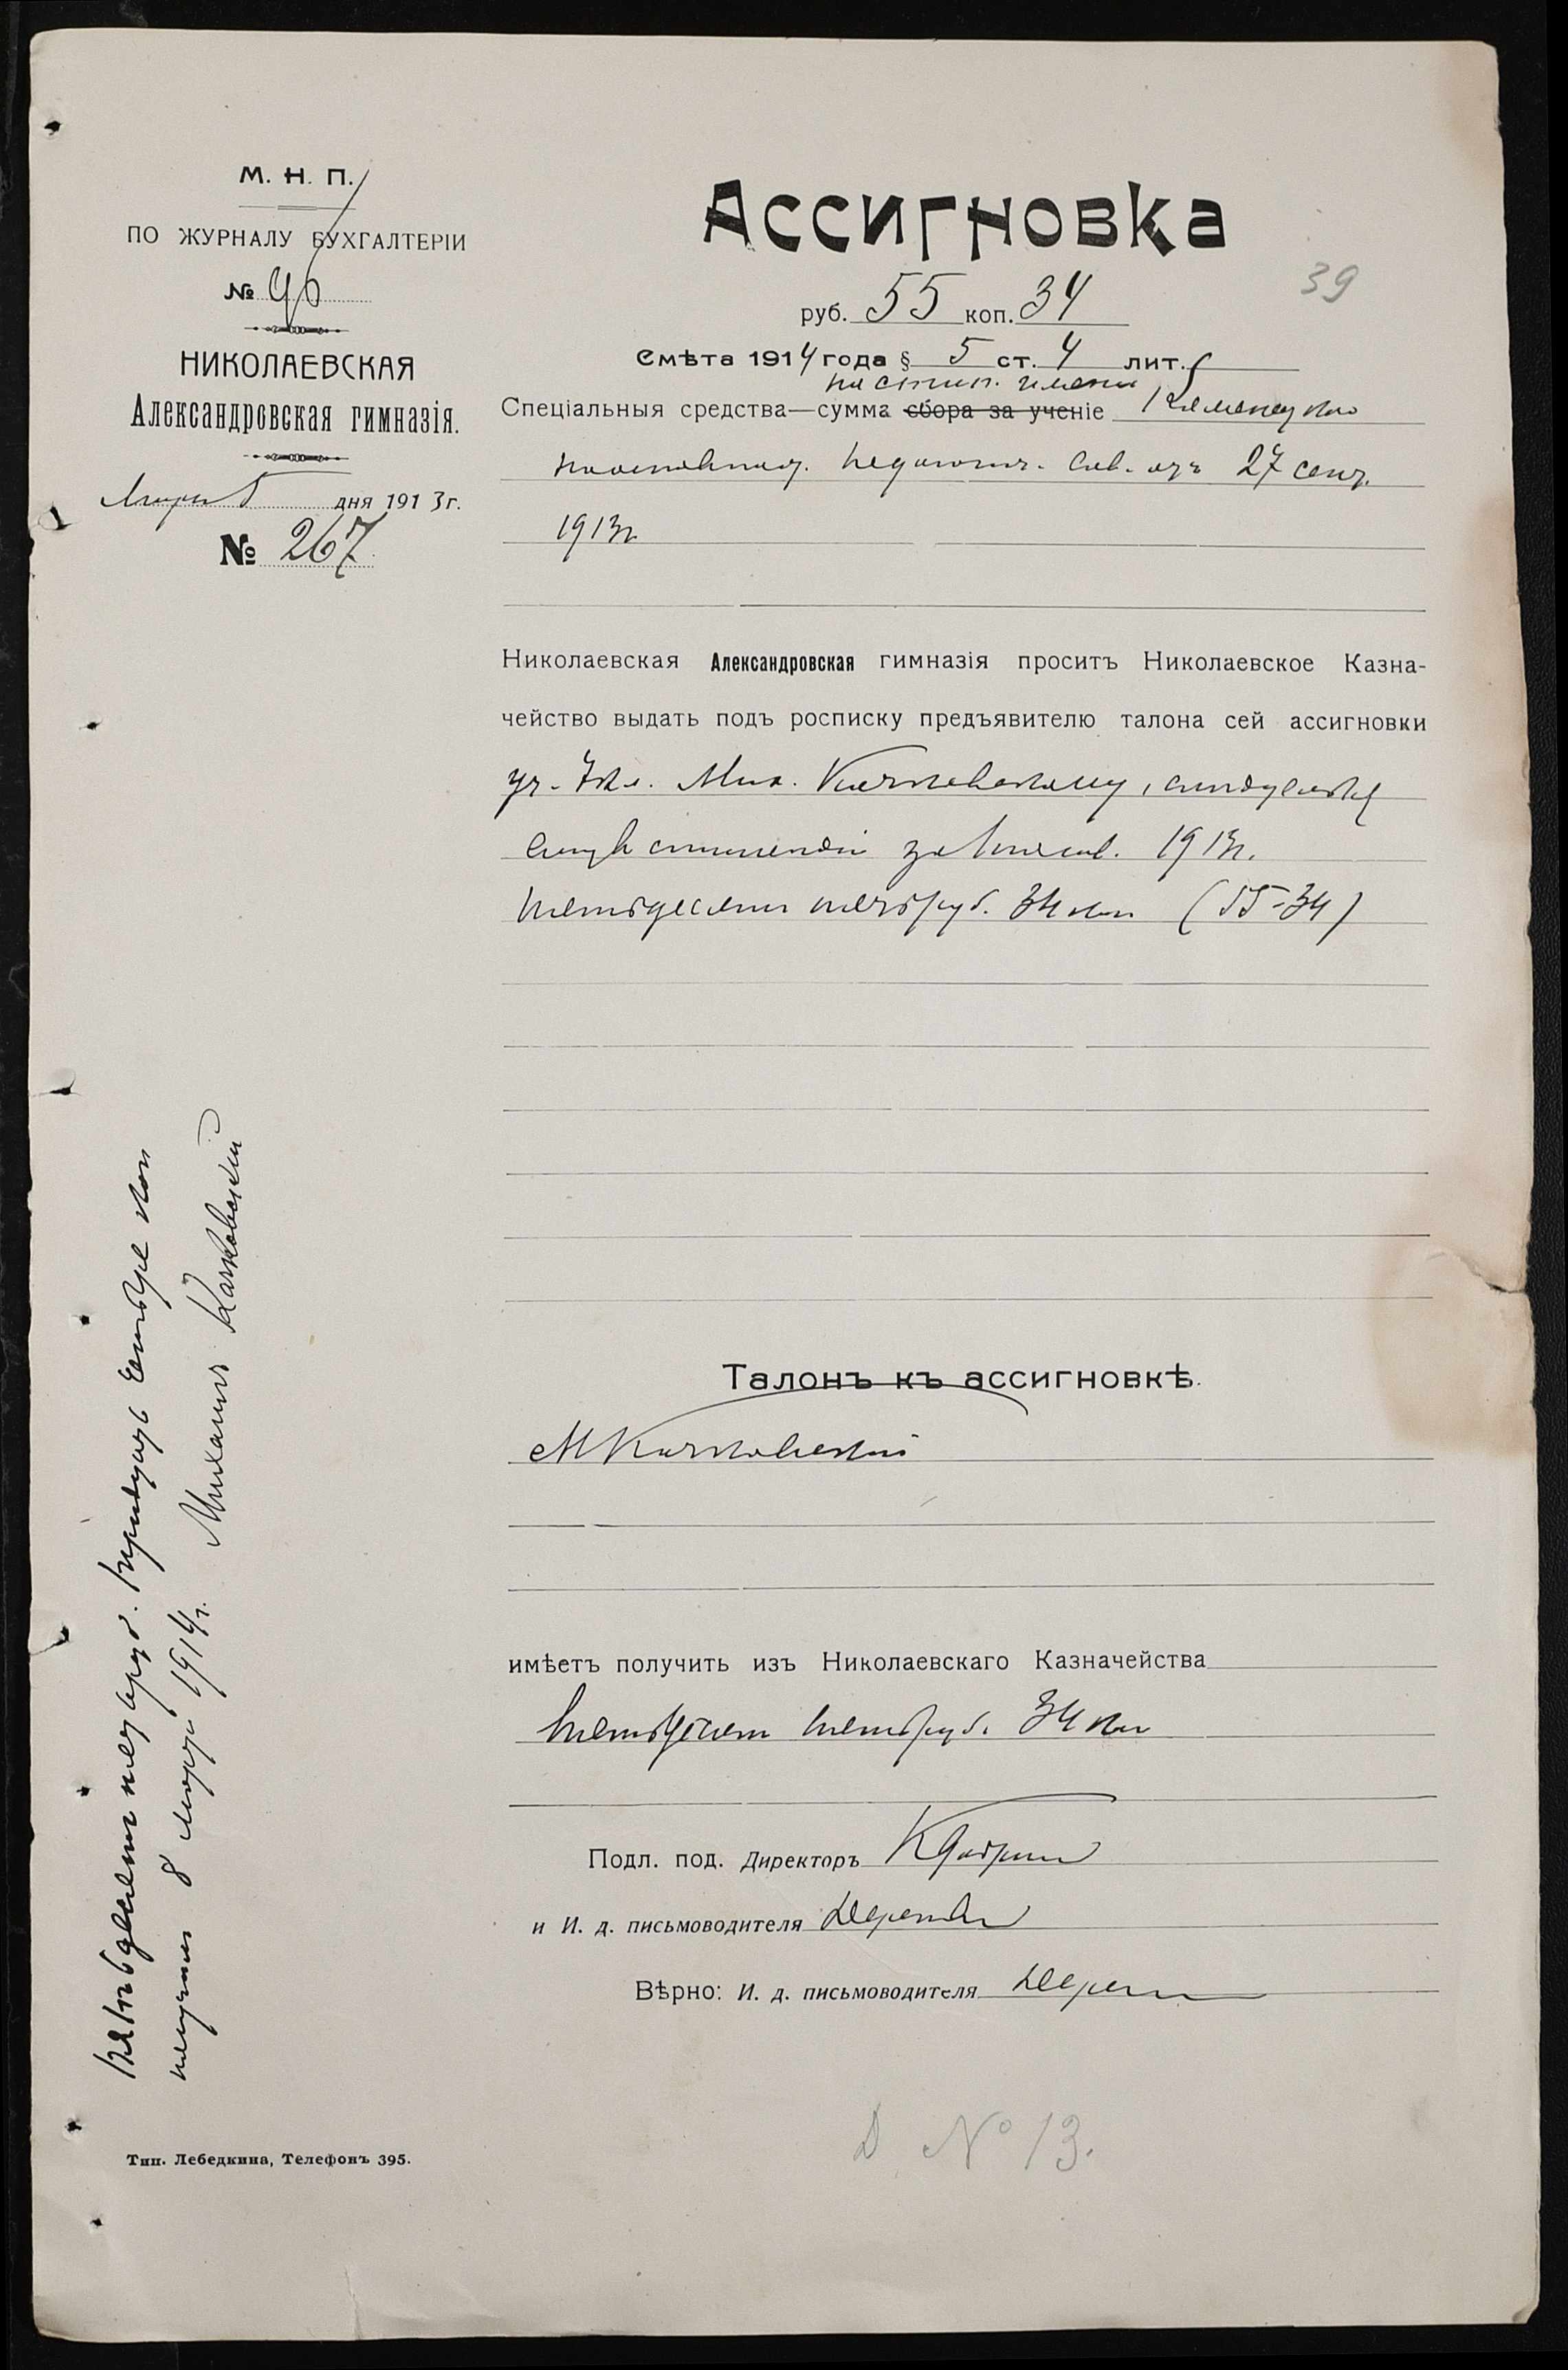 М. Н. П.
ПО ЖУРНАЛУ БУХГАЛТЕРІИ
№ 96
НИКОЛАЕВСКАЯ
Александровская гимназія.
Марта 5 дня 1913 г.
№ 267
Ассигновка
39
руб. 55 коп. 34
Смѣта 1914 года § 5 ст. 4 лит.
на стип. имени
Спеціальныя средства—сумма сбора за ученіе Каменецкаго
постановл. педагогич. Сов. отъ 27 сент.
1913 г.
Николаевская Александровская гимназія проситъ Николаевское Казна-
чейство выдать подъ росписку предъявителю талона сей ассигновки
уч. 7 кл. Мих. Качковскому,
стипендіи 1913 г.
пятьдесятъ пять руб. 34 коп (55-34)
Талонъ къ ассигновкѣ.
М Качковскій
имѣетъ получить изъ Николаевскаго Казначейства
пятьдесятъ пять руб. 34 коп
Подл. под. Директоръ
и И. д. письмоводителя
Вѣрно: И. д. письмоводителя
Пятьдесятъ пять руб. тридцать четыре коп
получилъ 8 марта 1914 г. Михаилъ Качковскій
Тип. Лебедкина, Телефонъ 395.
Д № 13.